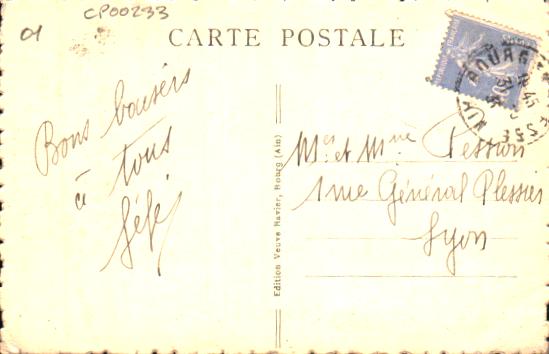 CP00233
01
CARTE POSTALE
BOURG
Bons baisers
à tous
Gégé
Mrs et Mme Pession
1 rue Général Plessier
Lyon
Edition Veuve Ravier, Bourg (Ain)